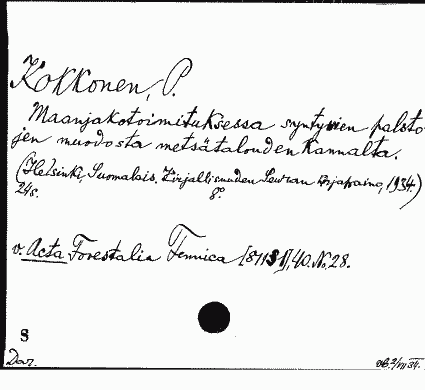 Kokkonen, P.
Maanjakotoimituksessa syntyvien palsto-
jen muodosta metsätalouden kannalta.
(Helsinki, Suomalais. Kirjallisuuden Seuran Kirjapaino, 1934.)
24s. 8°.
v. Acta Forestalia Fennica 40. No. 28.
S